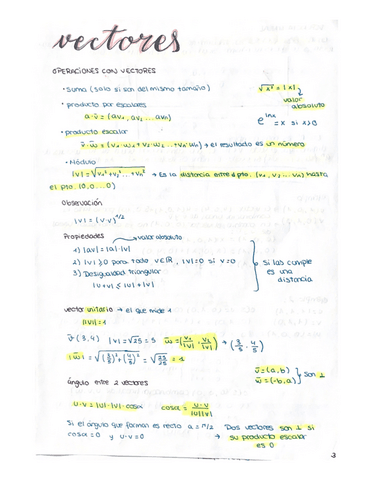 vectores
OPERACIONES CON VECTORES
• Suma (solo si son del mismo tamaño)
√x² = |x|
valor absoluto
• producto por escalares
a·v̄ = (av₁, av₂ ... avₙ)
e^lnx = x si x>0
• producto escalar
v̄·w̄ = (v₁·w₁ + v₂·w₂ ... + vₙ·wₙ) → el resultado es un número
• Módulo
|v| = √v₁² + v₂² ... + vₙ² → Es la distancia entre el pto. (v₁, v₂ ... vₙ) hasta
el pto. (0,0...0)
Observación
|v| = (v·v)^1/2
Propiedades
valor absoluto
1) |av| = |a|·|v|
2) |v| ≥ 0 para todo v∈ℝ, |v| = 0 si v=0
3) Desigualdad triangular
|u+v| ≤ |u| + |v|
si las cumple es una distancia
vector unitario → el que mide 1
|v| = 1
v̄ (3,4) |v| = √25 = 5 w̄ = (v₁/|v|, v₂/|v|) → (3/5, 4/5)
|w̄| = √(3/5)² + (4/5)² = √25/25 = 1
v̄ = (a,b)
w̄ = (-b,a) } son ⊥
Ángulo entre 2 vectores
u·v = |u|·|v|·cosα cosα = u·v/|u||v|
Si el ángulo que forman es recto α = π/2
cosα = 0 y u·v = 0
Dos vectores son ⊥ si
→ su producto escalar
es 0
3